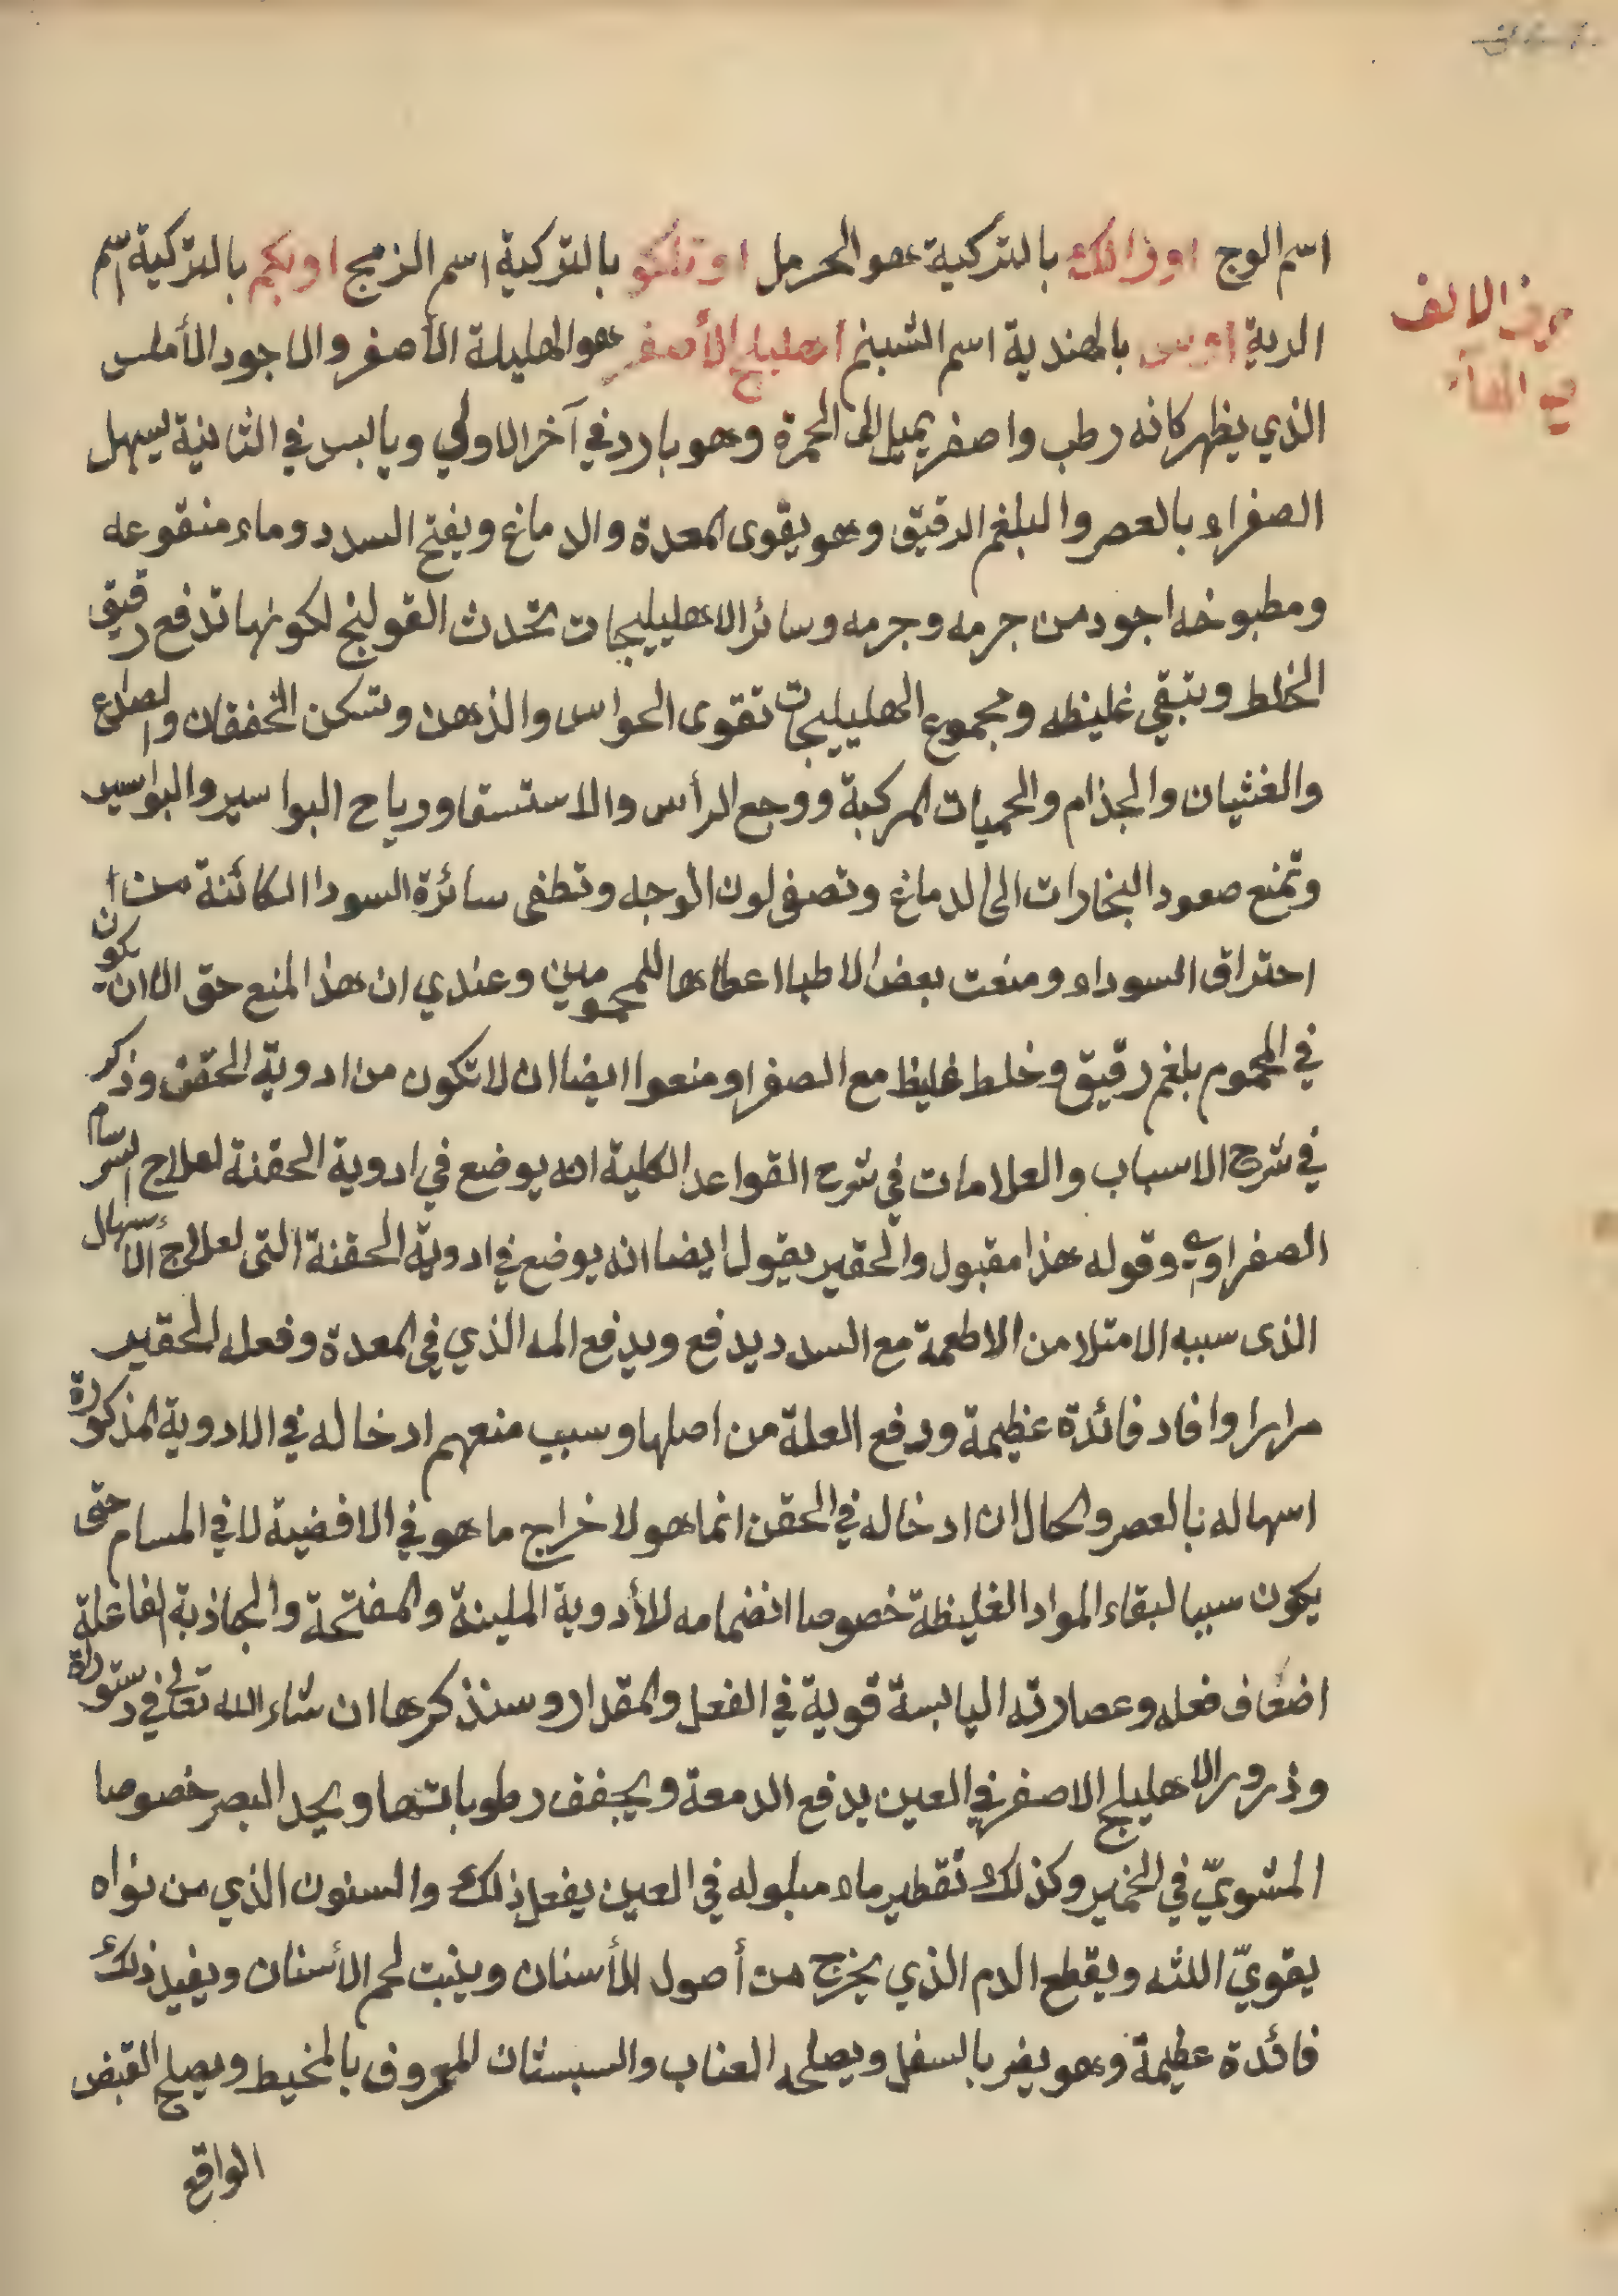 حرف الالف
في الهاء
اسم الوج اوزالك بالتركية هو الحرمل اوتلكو بالتركية اسم الزمج اوبكم بالتركية اسم
الرية اوس بالهندية اسم الشبنم اهليلج الأصفر هو الهليلة الأصفر والاجود الأملس
الذي يظهر كانه رطب واصفر يميل الى الحمرة وهو بارد في آخر الاولي ويابس في الثانية يسهل
الصفراء بالعصر والبلغم الرقيق وهو يقوى المعدة والدماغ ويفتح السدد وماء منقوعه
ومطبوخه اجود من جرمه وجرمه وسائر الاهليليجات تحدث القولنج لكونها تدفع رقيق
الخلط وتبقي غليظه ومجموع الهليليجات تقوى الحواس والذهن وتسكن الخفقان والصداع
والغثيان والجذام والحميات المركبة ووجع الرأس والاستسقا ورياح البواسير والبواسير
وتمنع صعود البخارات الى الدماغ وتصفى لون الوجه وتطفى سائرة السودا الكائنة من ا
احتراق السوداء ومنعت بعض الاطبا اعطاها للمحمومين وعندي ان هذا المنع حق الا ان يكون
في المحموم بلغم رقيق وخلط غليظ مع الصفرا ومنعوا ايضا ان لا تكون من ادوية الحقن وذكر
في شرح الاسباب والعلامات في شرح القواعد الكلية انه يوضع في ادوية الحقنة لعلاج السرسام
الصفراوي وقوله هذا مقبول والحقير يقول ايضا انه يوضع في ادوية الحقنة التى لعلاج الأسهال
الذى سببه الامتلا من الاطعمة مع السدد يدفع ويدفع المه الذي في المعدة وفعله الحقير
مرارا وافاد فائدة عظيمة ودفع العلة من اصلها وسبب منعهم ادخاله في الادوية المذكورة
اسهاله بالعصر والحال ان ادخاله في الحقن انما هو لاخراج ما هو في الافضية لا في المسام حتى
يكون سببا لبقاء المواد الغليظة خصوصا انضمامه للأدوية الملينة والمفتحة والجاذبة الفاعلة
اضعاف فعله وعصارته اليابسة قوية في الفعل والمقدار وسنذكرها ان شاء الله تعالى في دستوراة
وذرور الاهليلج الاصفر في العين يدفع الدمعة ويجفف رطوباتها ويحد البصر خصوصا
المشويّ في الخمير وكذلك تقطير ماء مبلوله في العين يفعل ذلك والسنون الذي من نواه
يقويّ اللثه ويقطع الدم الذي يخرج من أصول الأسنان وينبت لحم الأسنان ويفيد ذلك
فائدة عظيمة وهو يضر بالسفل ويصلحه العناب والسبستان المعروف بالمخيط ويصلح القبض
الواقع